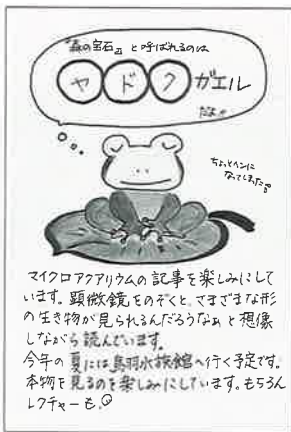 『森の宝石』と呼ばれるのは
ヤドクガエル
だよ!!
ちょっとヘンに
なってしまった
マイクロアクアリウムの記事を楽しみにして
います。顕微鏡をのぞくと、さまざまな形
の生き物が見られるんだろうなぁと想像
しながら読んでいます。
今年の夏には鳥羽水族館へ行く予定です。
本物を見るのを楽しみにしています。もちろん
レクチャーも。